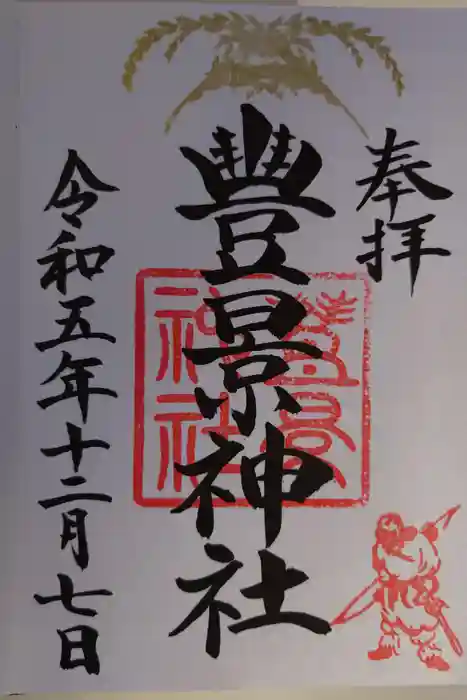 奉拝
豐景神社
豊景
神社
令和五年十二月七日